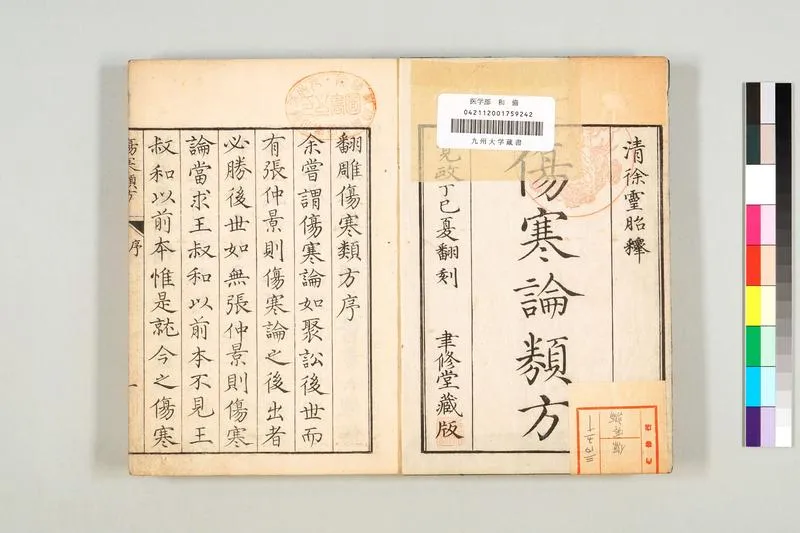 清徐靈胎釋
傷寒論類方
寛政丁巳夏翻刻 聿修堂藏版
医学部 和 備
042112001759242
九州大学蔵書
翻雕傷寒類方序
余嘗謂傷寒論如聚訟後世而
有張仲景則傷寒論之後出者
必勝後世如無張仲景則傷寒
論當求王叔和以前本不見王
叔和以前本惟是就今之傷寒
傷寒類方
序
一